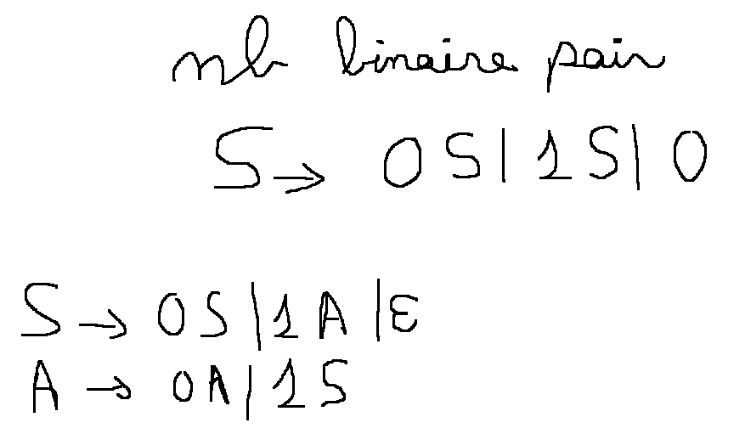 nb binaire pair
S → 0S|1S|0
S → 0S|1A|ε
A → 0A|1S